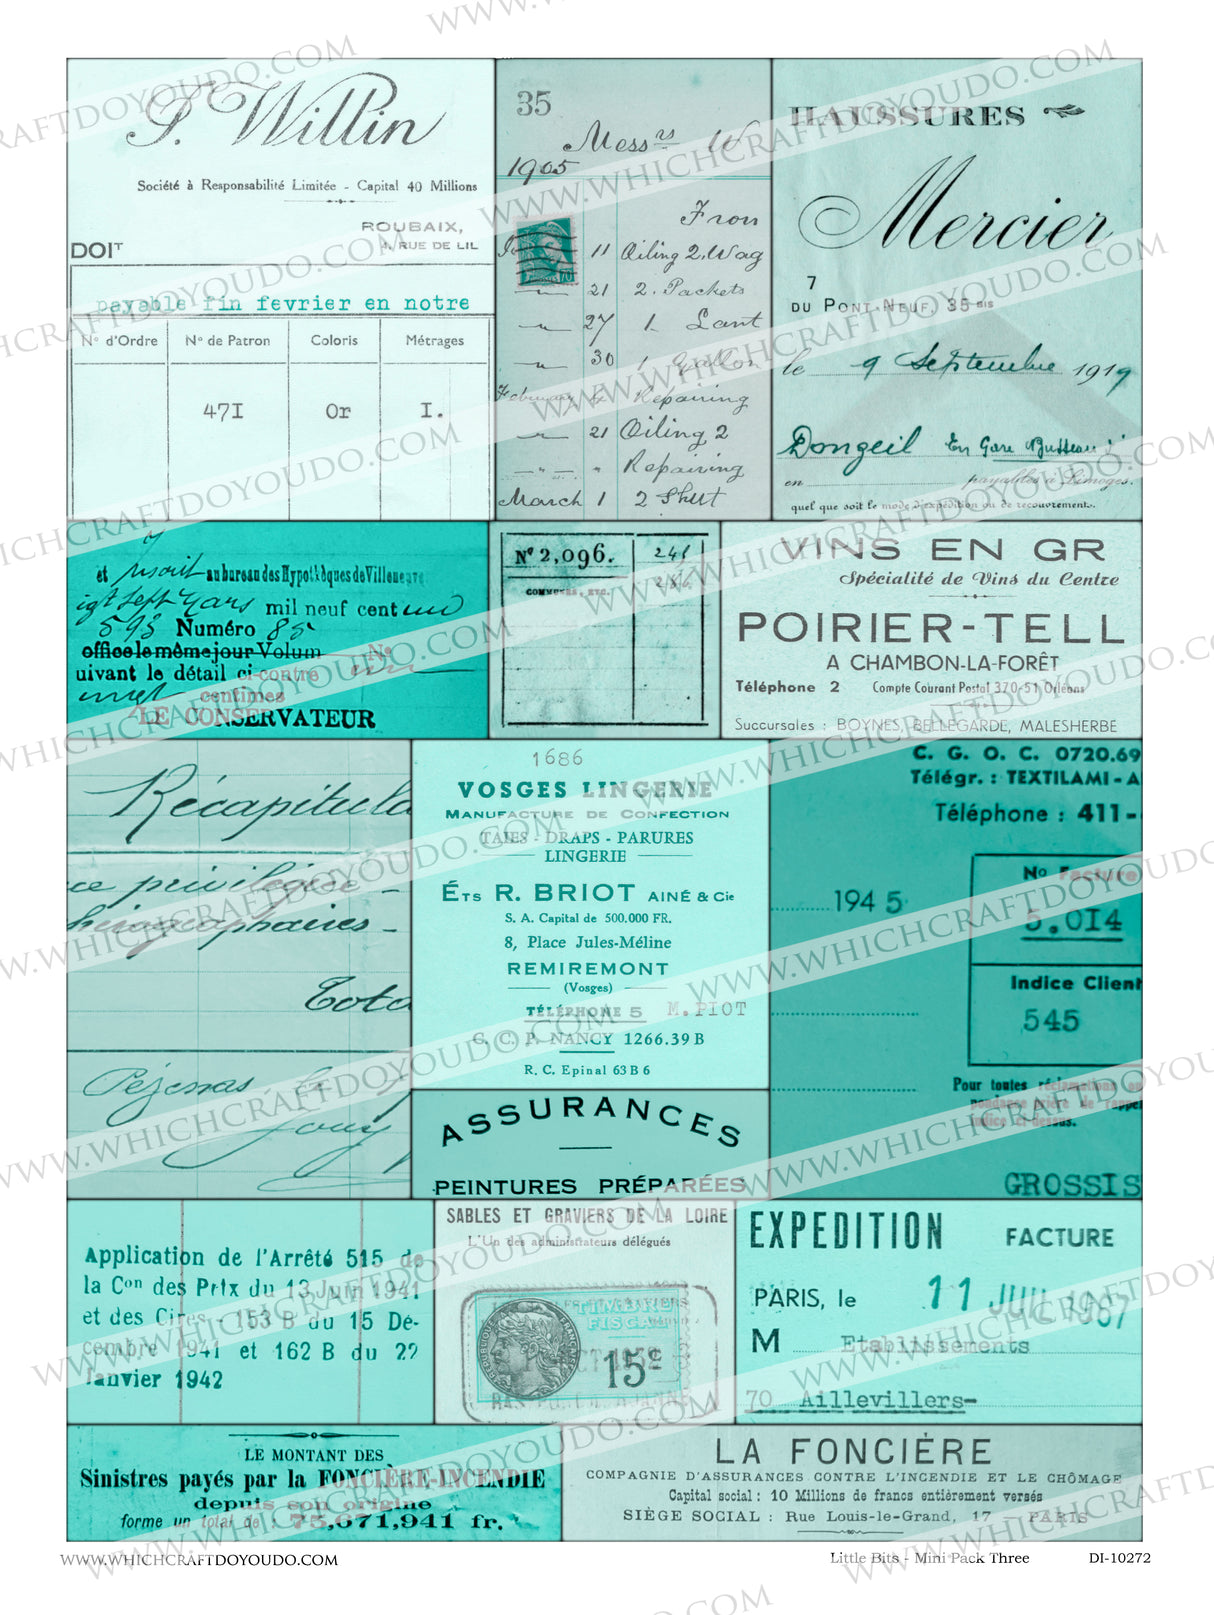 P. Willin
Société à Responsabilité Limitée - Capital 40 Millions
ROUBAIX,
4, RUE DE LIL
DOIT
payable fin fevrier en notre
No d'Ordre No de Patron Coloris Métrages
471 Or I.
35
Messrs W
1905
Fron
11 Oiling 2. Wag
21 2. Packets
27 1 Lant
30 1 Gallon
February 6 Repairing
21 Oiling 2
" Repairing
March 1 2 Shut
HAUSSURES
Mercier
7
DU PONT-NEUF, 35 BIS
le 9 Septembre 1919
Dongeil En Gare Busseau
en payables à Limoges.
quel que soit le mode d'expédition ou de recouvrement.
et au bureau des Hypothèques de Villeneuve
igt Sept Mars mil neuf cent
593 Numéro 85
office le même jour Volum No
uivant le détail ci-contre
centimes
LE CONSERVATEUR
No 2,096. 241
COMMUNES, ETC. 286
VINS EN GR
Spécialité de Vins du Centre
POIRIER-TELL
A CHAMBON-LA-FORÊT
Téléphone 2 Compte Courant Postal 370-51 Orléans
Succursales : BOYNES, BELLEGARDE, MALESHERBE
Récapitula
ce privilégiée -
hirographaires -
Tota
Pézenas le
1686
VOSGES LINGERIE
MANUFACTURE DE CONFECTION
TAIES - DRAPS - PARURES
LINGERIE
ÉTS R. BRIOT AINÉ & Cie
S. A. Capital de 500.000 FR.
8, Place Jules-Méline
REMIREMONT
(Vosges)
TÉLÉPHONE 5 M. PIOT
C. C. P. NANCY 1266.39 B
R. C. Epinal 63 B 6
C. G. O. C. 0720.69
Télégr. : TEXTILAMI - A
Téléphone : 411-
194 5
No Facture
5.014
Indice Clien
545
Pour toutes réclamations ou
pondance prière de rappe
indice ci-dessus.
GROSSIS
ASSURANCES
PEINTURES PRÉPARÉES
Application de l'Arrêté 515 de
la Con des Prix du 13 Juin 1941
et des Cires - 153 B du 15 Dé-
cembre 1941 et 162 B du 22
Janvier 1942
SABLES ET GRAVIERS DE LA LOIRE
L'Un des administrateurs délégués
TIMBRE
FISCAL
REPUBLIQUE FRANÇAISE
15c
EXPEDITION FACTURE
PARIS, le 11 JUIL 1967
M Etablissements
70 Aillevillers-
LE MONTANT DES
Sinistres payés par la FONCIÈRE-INCENDIE
depuis son origine
forme un total de : 75,671,941 fr.
LA FONCIÈRE
COMPAGNIE D'ASSURANCES CONTRE L'INCENDIE ET LE CHÔMAGE
Capital social : 10 Millions de francs entièrement versés
SIÈGE SOCIAL : Rue Louis-le-Grand, 17 - PARIS
WWW.WHICHCRAFTDOYOUDO.COM Little Bits - Mini Pack Three DI-10272